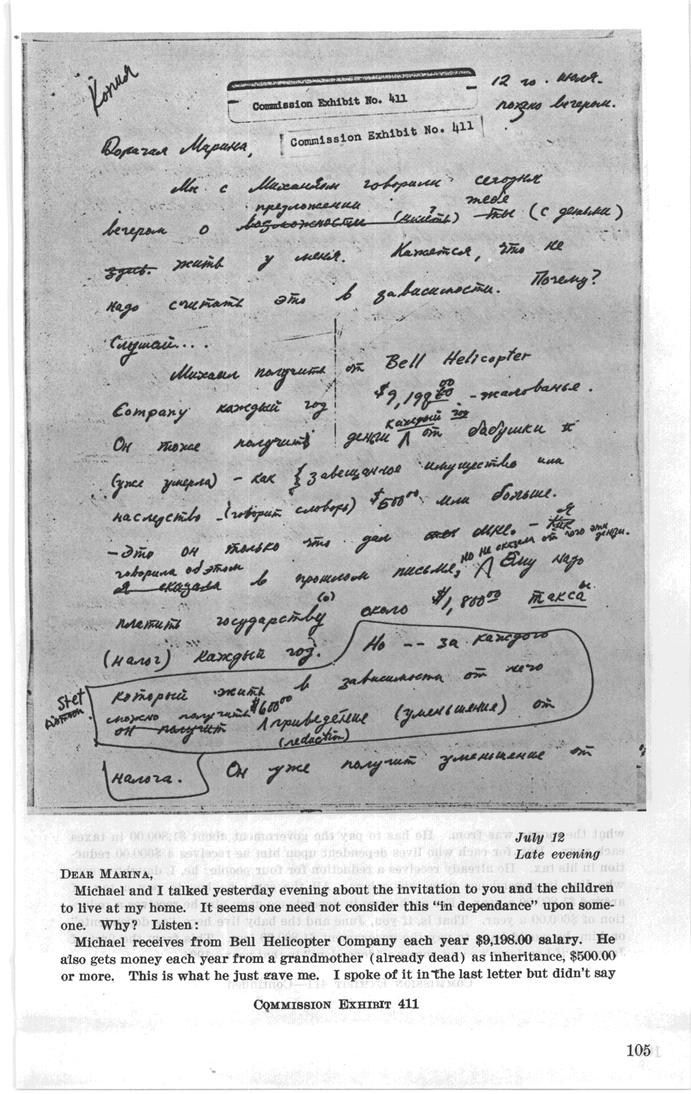 Копия
Commission Exhibit No. 411
12 го. июля.
поздно вечером.
Commission Exhibit No. 411
Дорагая Марина,
Мы с Михаилом говорили сегодня
предложении тебе
вечером о возможности (иметь) ты (с детьми)
здесь жить у меня. Кажется, что не
надо считать это в зависимости. Почему?
Слушай....
Михаил получить от Bell Helicopter
Company каждый год $9,198.00 - жалованье.
каждый год
Он тоже получить деньги от бабушки
(уже умерла) - как завещанное имущество или
наследство - (говорит словарь) $500.00 или больше.
- Это он только что дал мне. - Я
говорила об этом но не сказала от чего эти деньги.
я сказала в прошлом письме, Ему надо
платить государству (о) около $1,800.00 такса
(налог) каждый год. Но -- за каждого
stet
который жить в зависимости от него
можно получить $600.00
он получит приведение (уменьшение) от
(reduction)
налога. Он уже получит уменьшение от
July 12
Late evening
DEAR MARINA,
Michael and I talked yesterday evening about the invitation to you and the children
to live at my home. It seems one need not consider this "in dependance" upon some-
one. Why? Listen:
Michael receives from Bell Helicopter Company each year $9,198.00 salary. He
also gets money each year from a grandmother (already dead) as inheritance, $500.00
or more. This is what he just gave me. I spoke of it in the last letter but didn't say
COMMISSION EXHIBIT 411
105